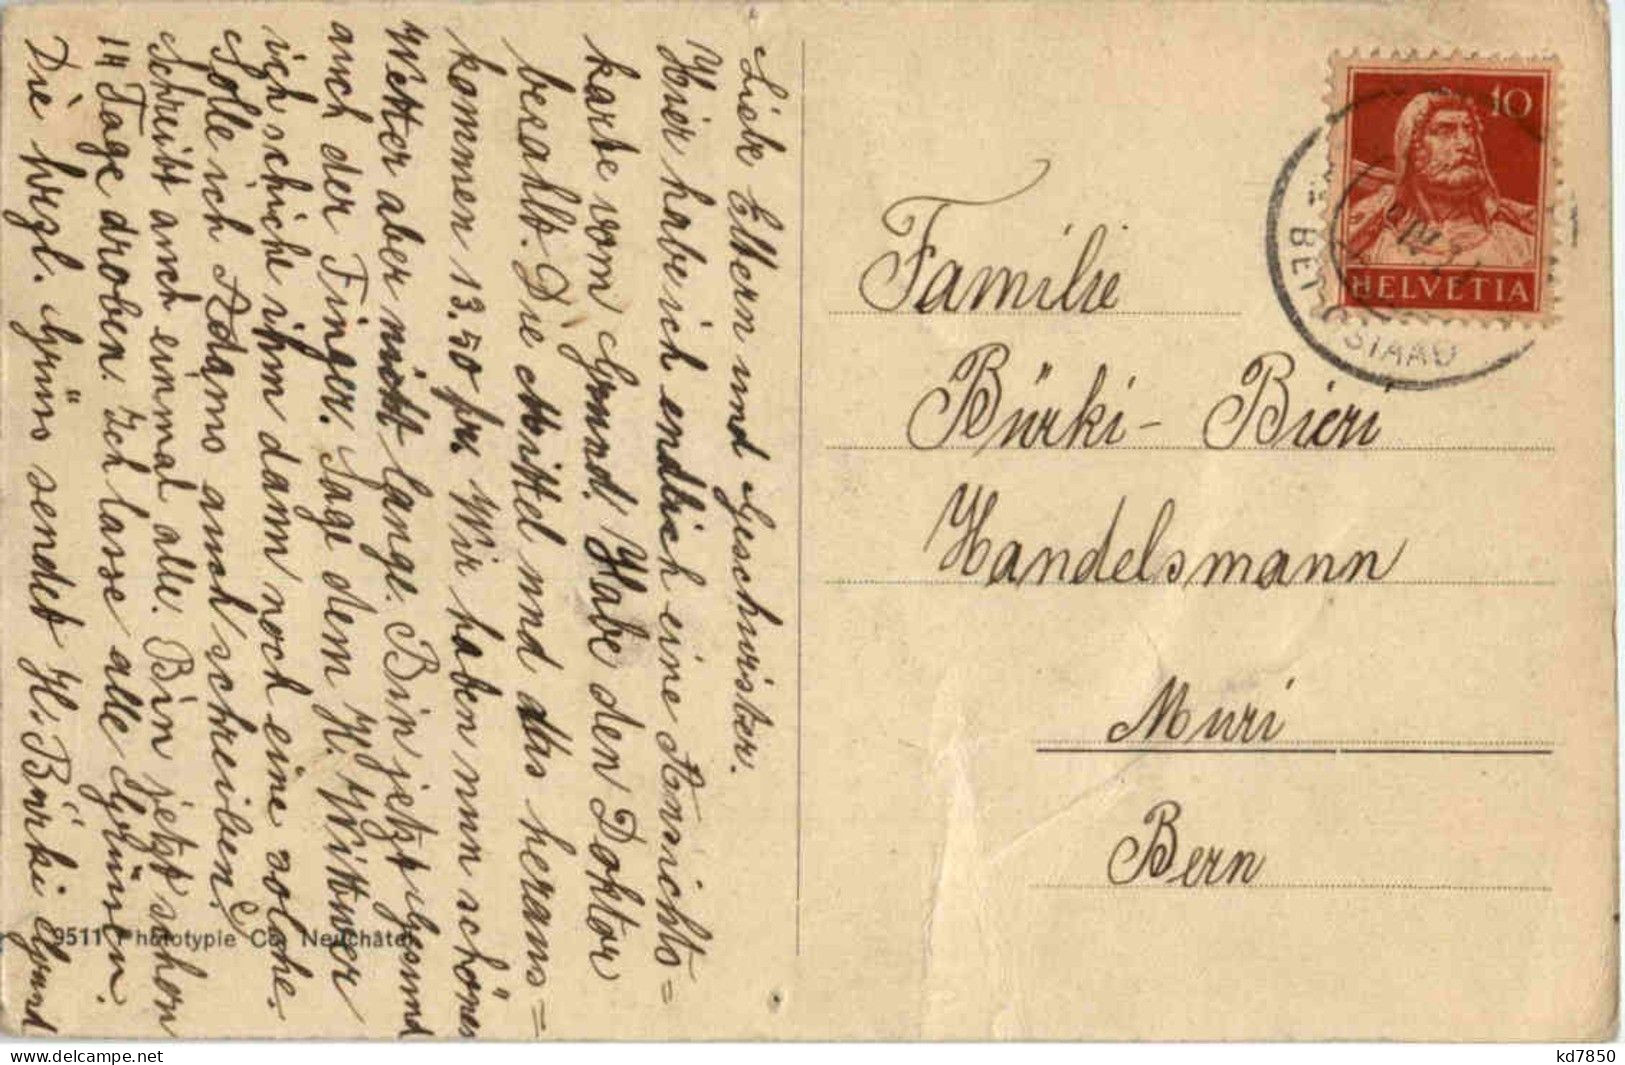 Liebe Eltern und Geschwister.
Hier habe ich endlich eine Ansichts=
karte vom Grund. Habe den Doktor
bezahlt. Die Mittel und das heraus=
kommen 13.50 fr. Wir haben nun schönes
Wetter aber nicht lange. Bin jetzt gesund
auch der Finger. Sage dem H. Wittwer
ich schicke ihm dann noch eine solche.
Solle ich Adams auch schreiben?
Schreibt auch einmal alle. Bin jetzt schon
14 Tage droben. Ich lasse alle Grüssen.
Die herzl. Grüss sendet H. Bürki Grund
9511 Phototypie Co. Neuchâtel
10
HELVETIA
STAAD
Familie
Bürki - Bieri
Handelsmann
Muri
Bern
kd7850